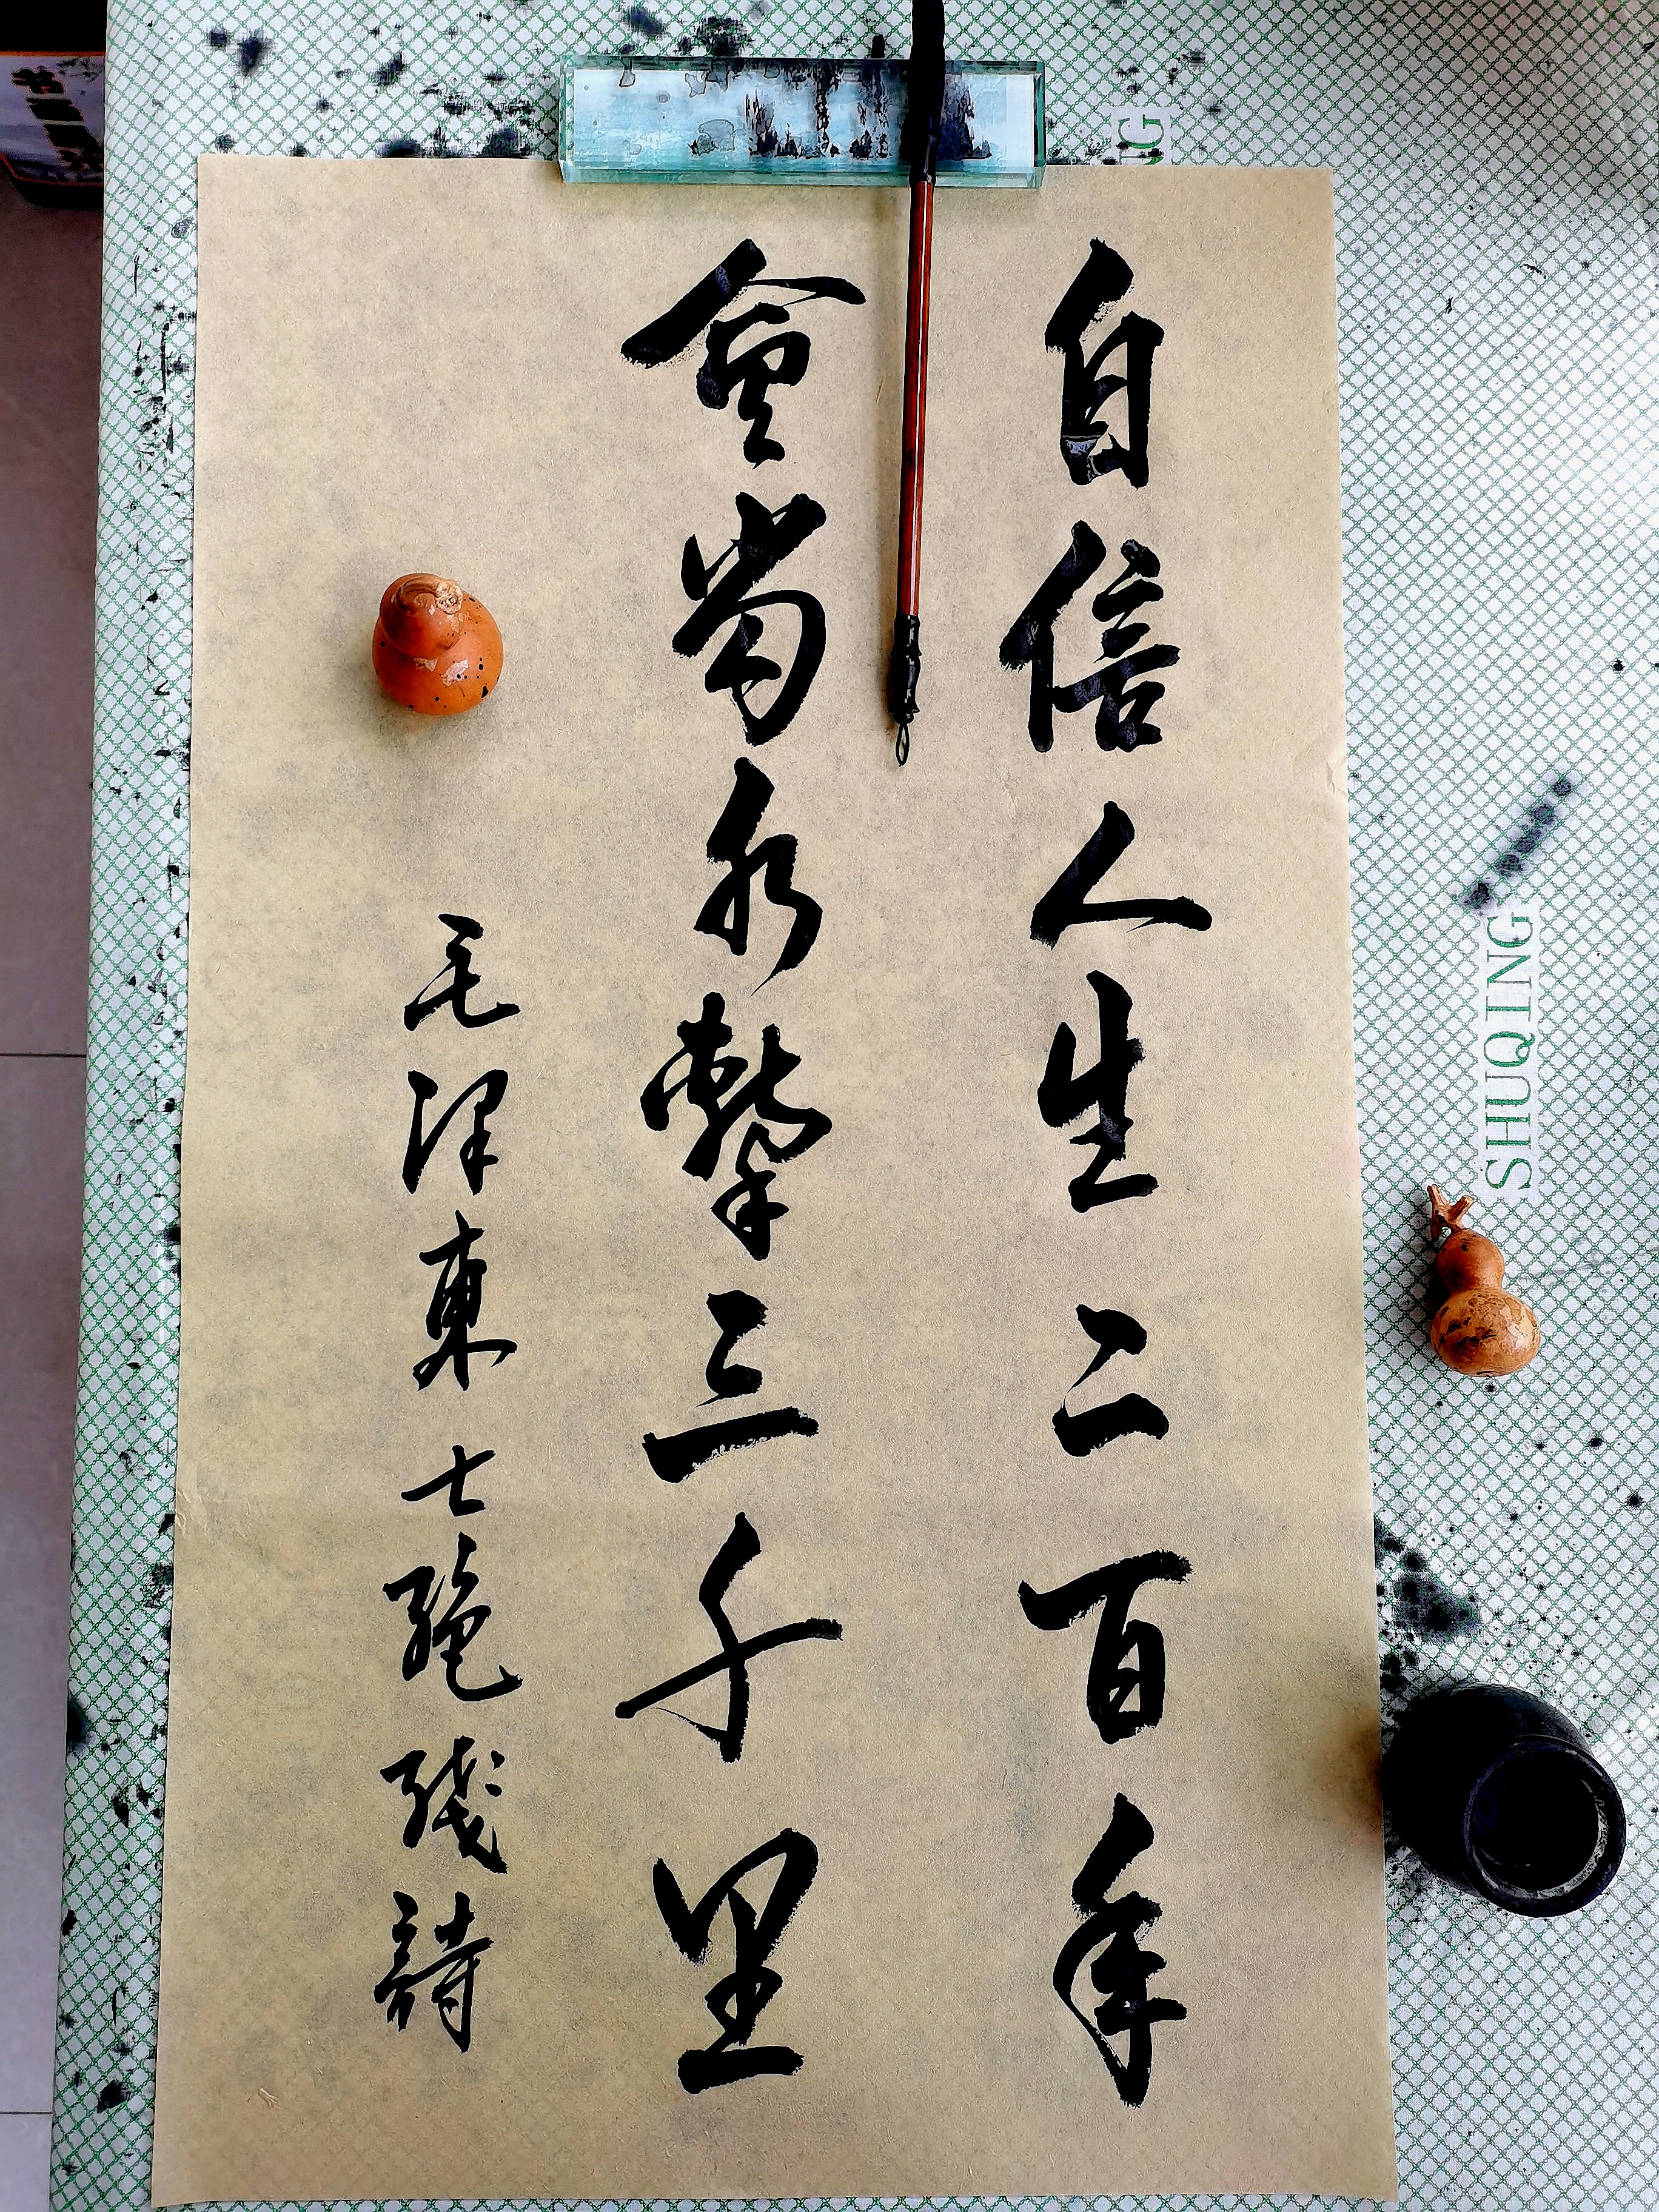 自信人生二百年
會當水擊三千里
毛泽東七絕殘詩
SHUQING
NG